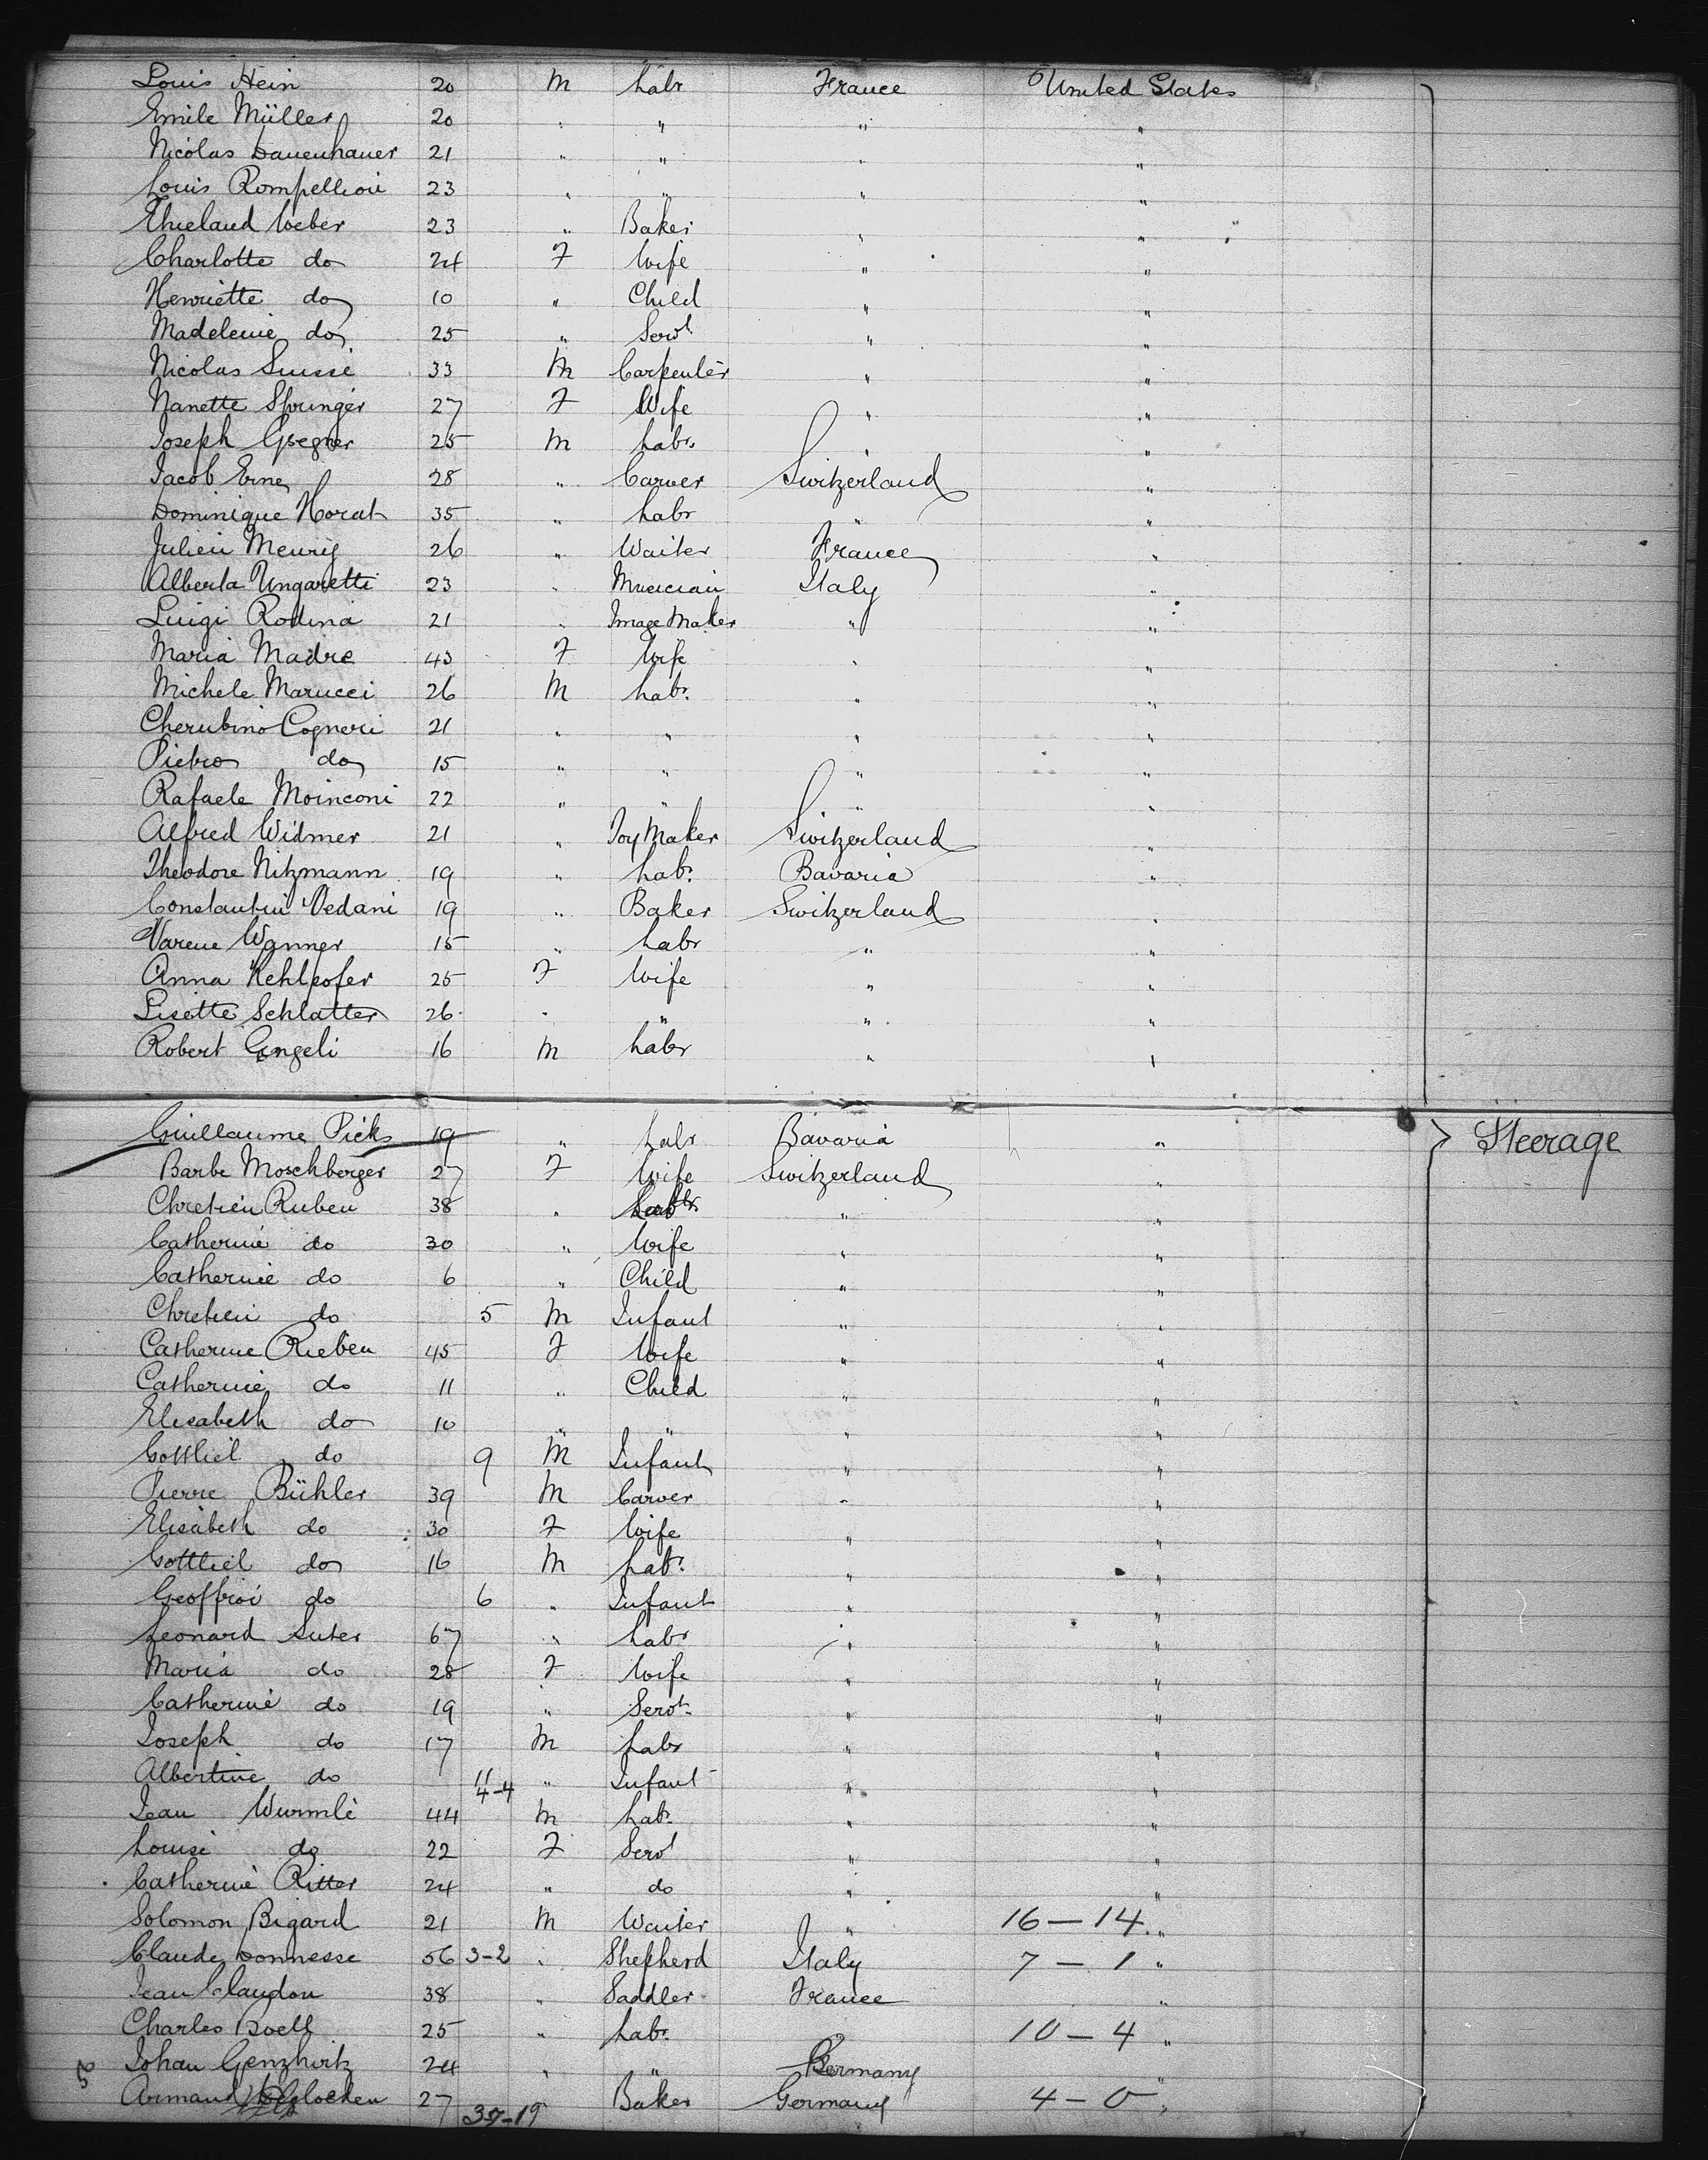 Louis Hein 20 M Labr France United States
Emile Müller 20 " " " "
Nicolas Dauenhauer 21 " " " "
Louis Rompellion 23 " " " "
Weber 23 " Baker " "
Charlotte do 24 F Wife " "
Henriette do 10 " Child " "
Madeleine do 25 " Servt " "
Nicolas Suisse 33 M Carpenter " "
Nanette Springer 27 F Wife " "
Joseph Gregner 25 M Labr. " "
Jacob Erne 28 " Carver Switzerland "
Dominique Horat 35 " Labr " "
Julien Meurig 26 " Waiter France "
Alberta Ungaretti 23 " Musician Italy "
Luigi Rodina 21 " Image Maker " "
Maria Madre 43 F Wife " "
Michele Marucci 26 M Labr. " "
Cherubino Cogneri 21 " " " "
Pietro do 15 " " " "
Rafaele Moinconi 22 " " " "
Alfred Widmer 21 " Toy Maker Switzerland "
Theodore Nitzmann 19 " Labr. Bavaria "
Constantin Vedani 19 " Baker Switzerland "
Varene Wanner 15 " Labr " "
Anna Kehlhofer 25 F Wife " "
Lisette Schlatter 26 " " " "
Robert Gengeli 16 M Labr " "
Guillaume Picks 19 " Labr Bavaria " Steerage
Barbe Moschberger 27 F Wife Switzerland "
Chretien Ruben 38 " Labr " "
Catherine do 30 " Wife " "
Catherine do 6 " Child " "
Chretien do 5 M Infant " "
Catherine Rieben 45 F Wife " "
Catherine do 11 " Child " "
Elisabeth do 10 " " " "
Gottlieb do 9 M Infant " "
Pierre Bühler 39 M Carver " "
Elisabeth do 30 F Wife " "
Gottlieb do 16 M Labr. " "
Geoffroi do 6 " Infant " "
Leonard Suter 67 " Labr " "
Maria do 28 F Wife " "
Catherine do 19 " Servt. " "
Joseph do 17 M Labr " "
Albertine do 11 4-4 " Infant " "
Jean Wurmli 44 M Labr. " "
Louise do 22 F Servt " "
Catherine Ritter 24 " do " "
Solomon Bigard 21 M Waiter " 16-14 "
Claude Donnesse 56 3-2 " Shepherd Italy 7-1 "
Jean Claudon 38 " Saddler France "
Charles Boell 25 " Labr. 10-4 "
Johan Genzhirtz 24 " " Germany "
Armand Glocken 27 Baker Germany 4-0 "
25 37-19